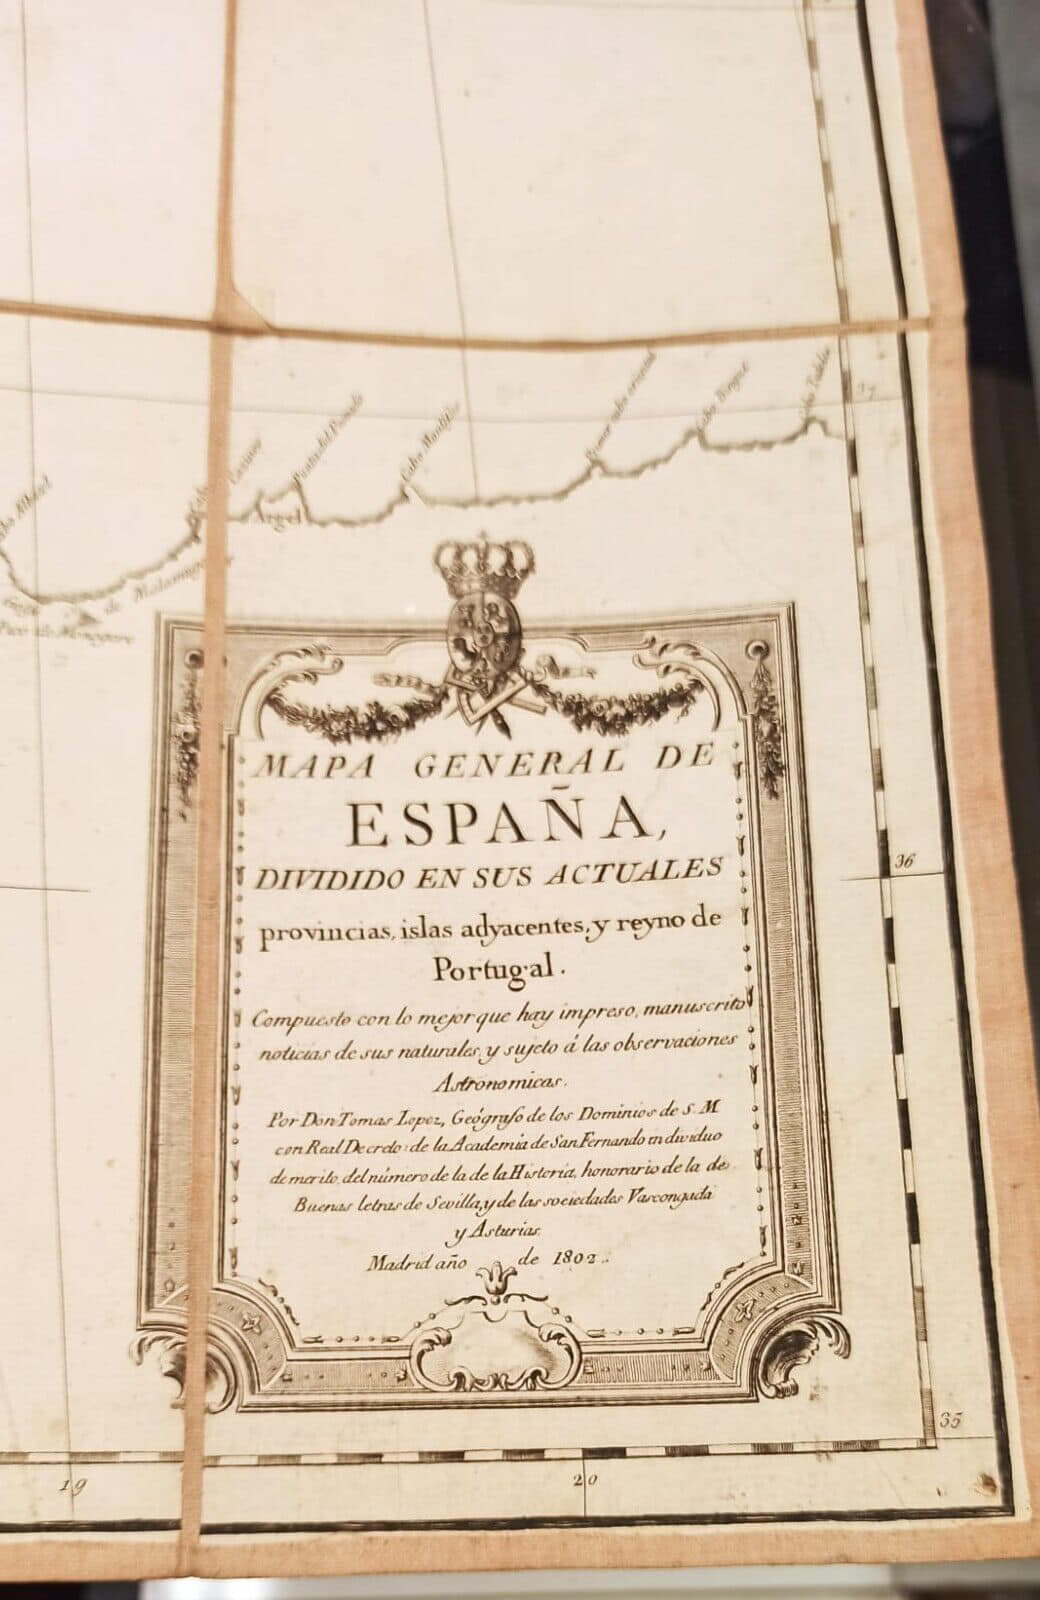 37
Argel
MAPA GENERAL DE
ESPAÑA,
DIVIDIDO EN SUS ACTUALES
provincias, islas adyacentes, y reyno de
Portugal.
Compuesto con lo mejor que hay impreso, manuscrito
noticias de sus naturales, y sujeto á las observaciones
Astronomicas.
Por Don Tomas Lopez, Geógrafo de los Dominios de S. M
con Real Decreto: de la Academia de San Fernando individuo
de merito, del número de la de la Historia, honorario de la de
Buenas letras de Sevilla, y de las sociedades Vascongada
y Asturias.
Madrid año de 1802.
36
35
19
20